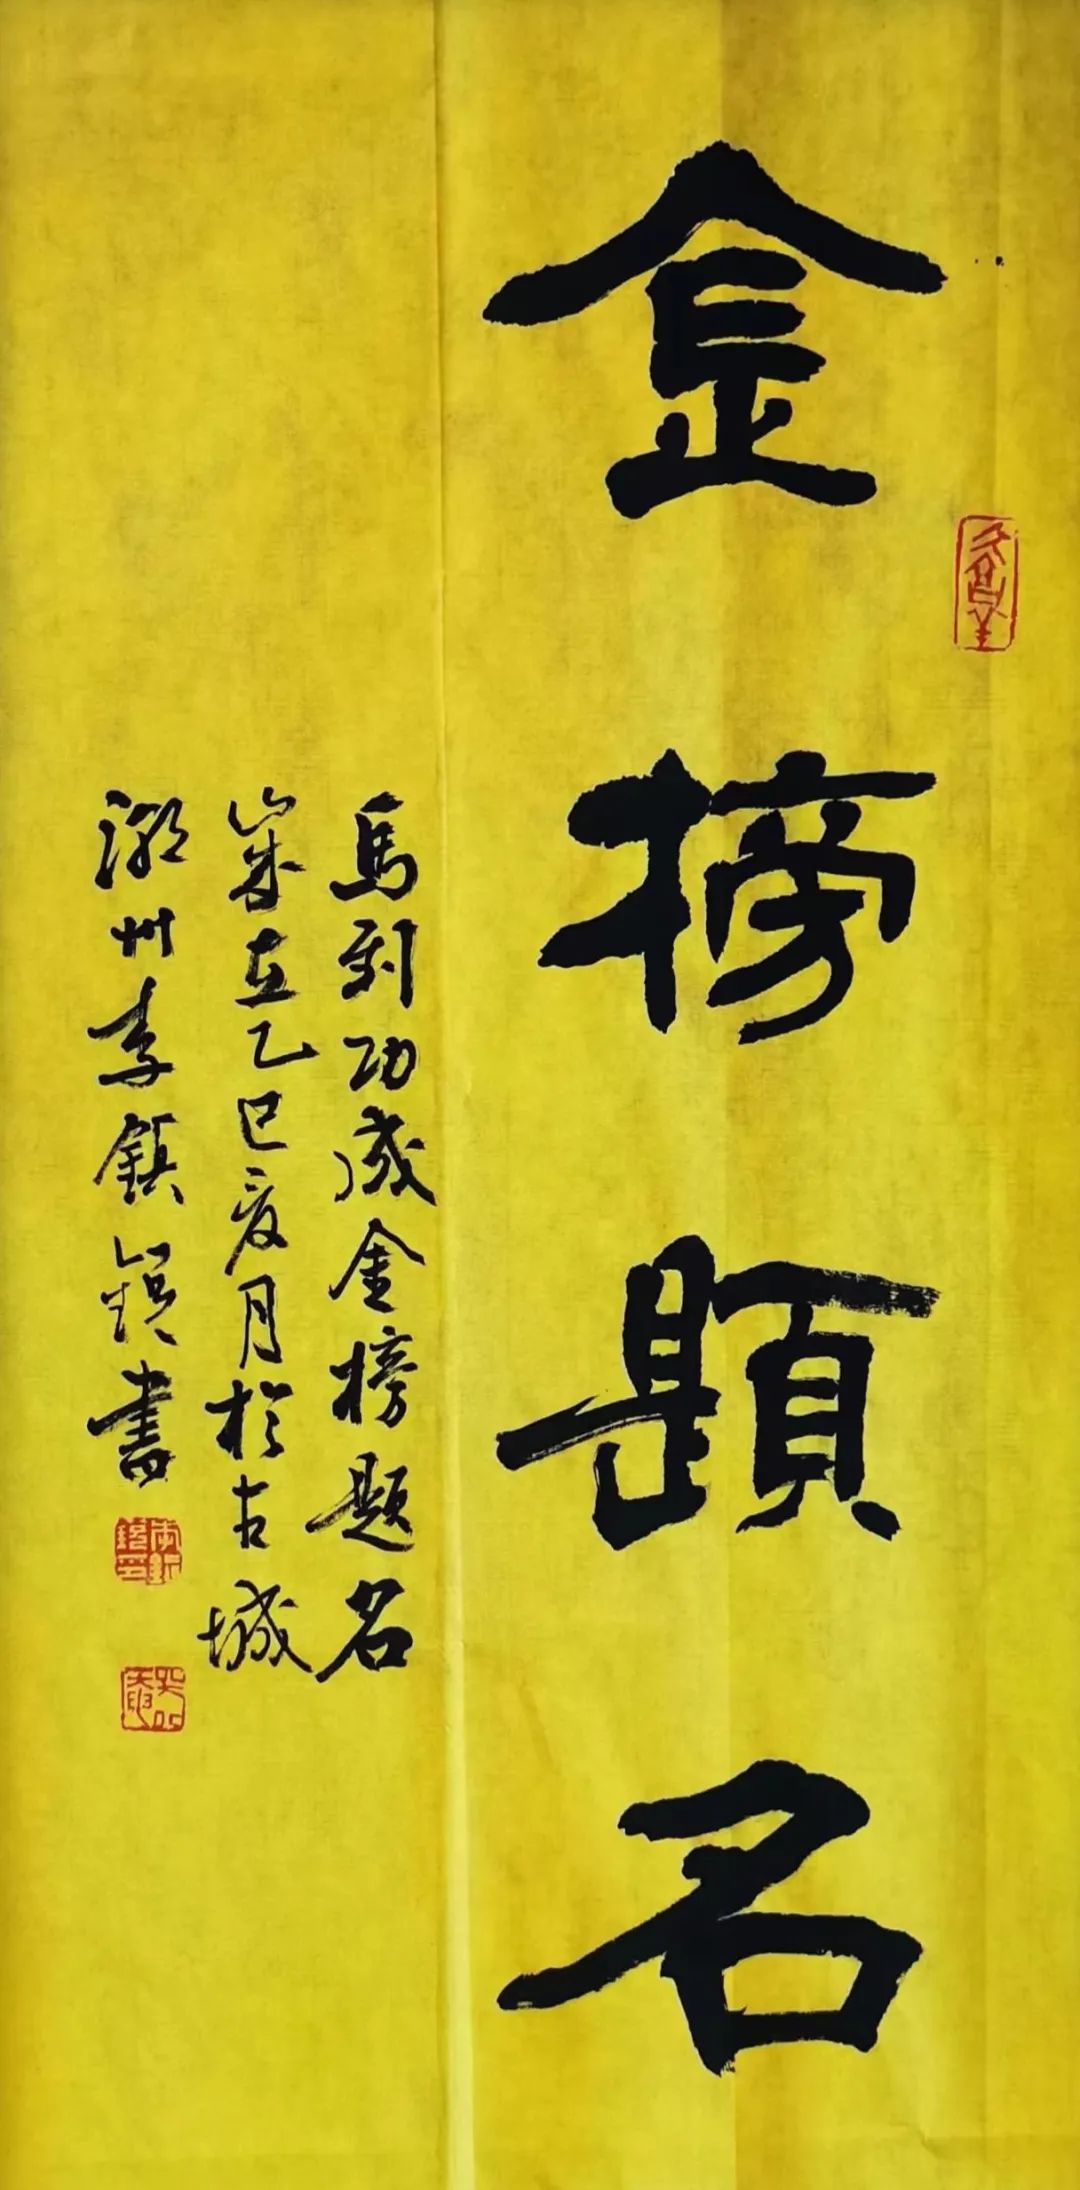 金榜題名
馬到功成金榜题名
歲在乙巳夏月於古城
潮州李鎮書